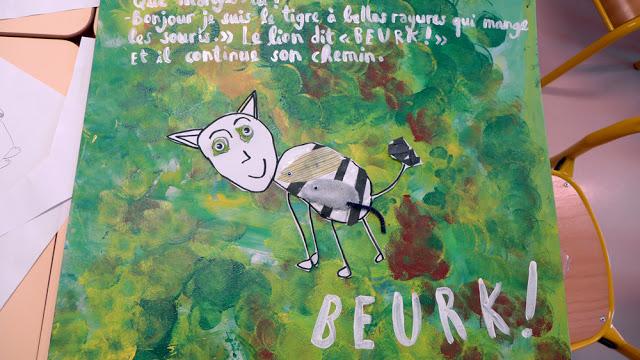 Que mange-tu?
-Bonjour je suis le tigre à belles rayures qui mange
les souris.» Le lion dit «BEURK!»
Et il continue son chemin.
BEURK!